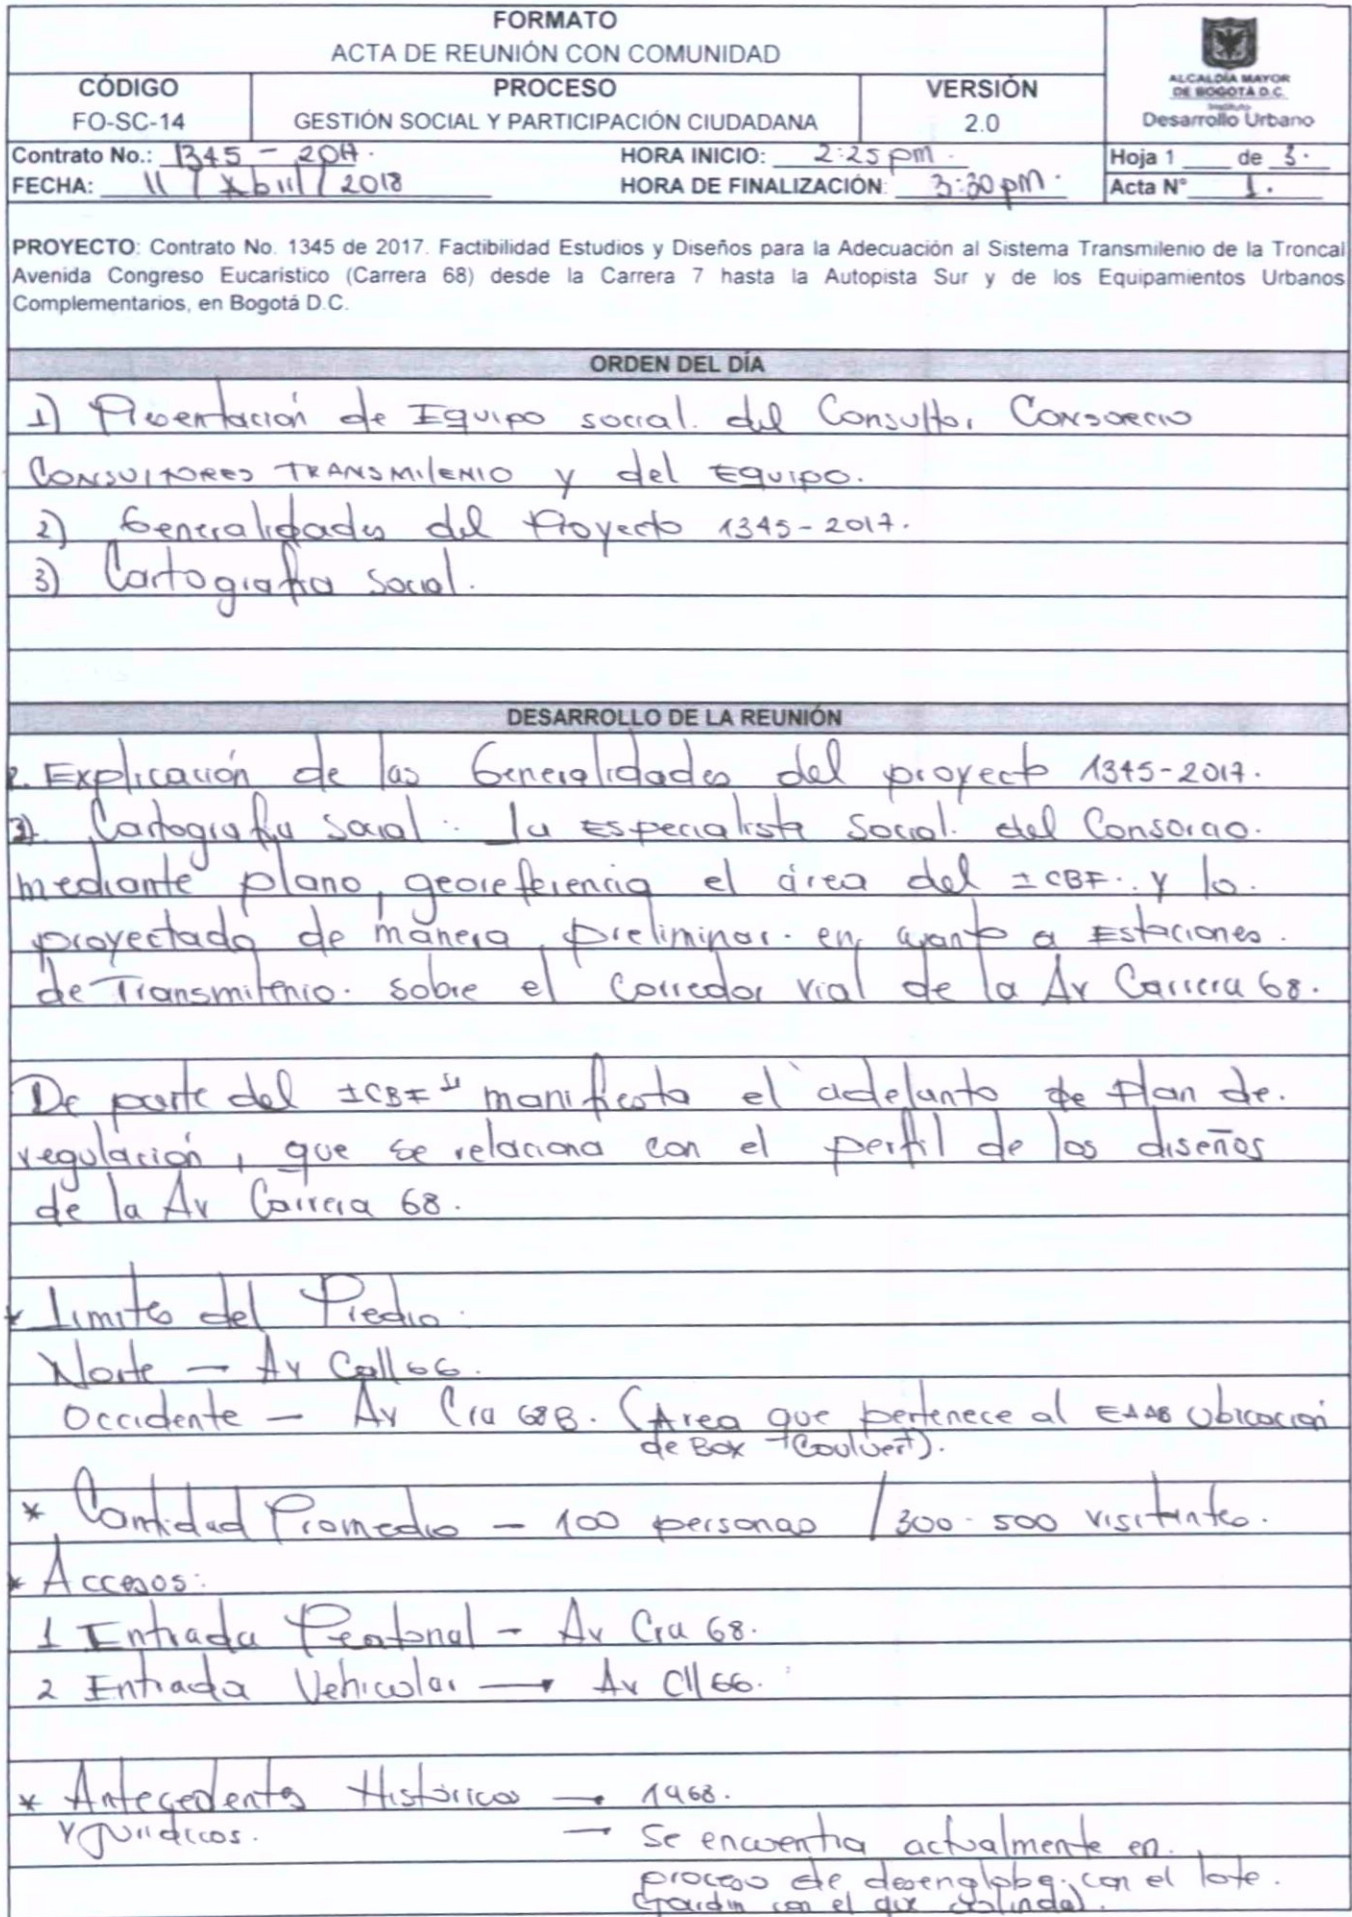 FORMATO
ACTA DE REUNIÓN CON COMUNIDAD
CÓDIGO
FO-SC-14
PROCESO
GESTIÓN SOCIAL Y PARTICIPACIÓN CIUDADANA
VERSIÓN
2.0
ALCALDÍA MAYOR
DE BOGOTÁ D.C.
Instituto
Desarrollo Urbano
Contrato No.: 1345 - 2017. HORA INICIO: 2:25 pm. Hoja 1 ____ de 3.
FECHA: 11 / Abril / 2018 HORA DE FINALIZACIÓN: 3:30 pm. Acta N° 1.
PROYECTO: Contrato No. 1345 de 2017. Factibilidad Estudios y Diseños para la Adecuación al Sistema Transmilenio de la Troncal
Avenida Congreso Eucarístico (Carrera 68) desde la Carrera 7 hasta la Autopista Sur y de los Equipamientos Urbanos
Complementarios, en Bogotá D.C.
ORDEN DEL DÍA
1) Presentación de Equipo social. del Consultor Consorcio
CONSULTORES TRANSMILENIO y del Equipo.
2) Generalidades del Proyecto 1345-2017.
3) Cartografia Social.
DESARROLLO DE LA REUNIÓN
2. Explicación de las Generalidades del proyecto 1345-2017.
3). Cartografia Social: la Especialista Social. del Consorcio.
mediante plano, georeferencia el área del ICBF. y lo.
proyectado de manera preliminar. en cuanto a Estaciones.
de Transmilenio. sobre el Corredor vial de la Av Carrera 68.
De parte del ICBF manifiesta el adelanto de Plan de.
regulación, que se relaciona con el perfil de los diseños
de la Av Carrera 68.
* Limites del Predio.
Norte - Av Call 66.
Occidente - Av Cra 68B. (Area que pertenece al EAAB Ubicación
de Box Coulvert).
* Cantidad Promedio - 100 personas / 300-500 visitantes.
* Accesos:
1 Entrada Peatonal - Av Cra 68.
2 Entrada Vehicular → Av Cll 66.
* Antecedentes Históricos → 1968.
y Juridicos. → Se encuentra actualmente en.
proceso de desenglobe. con el lote.
(Jardin con el que colinda).